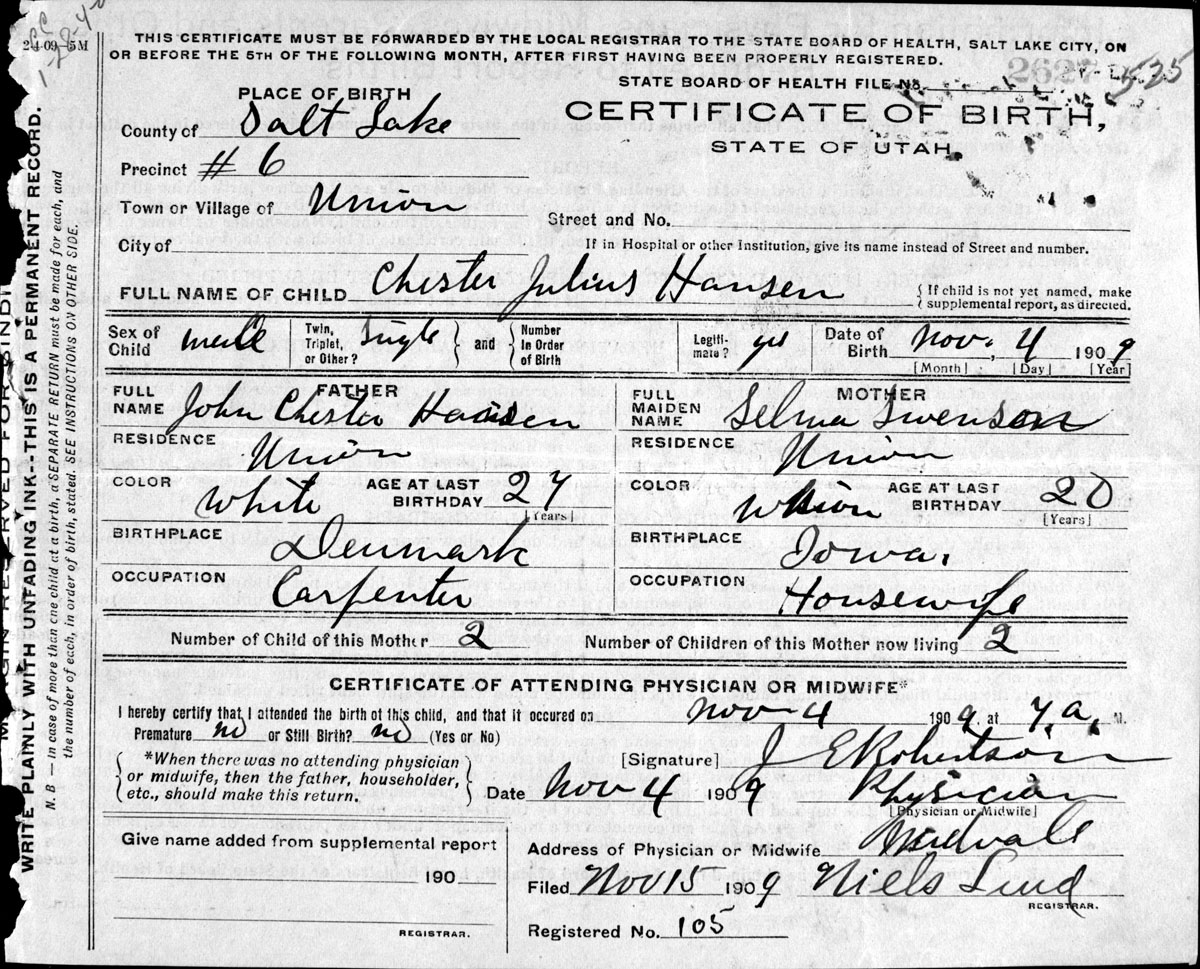 2-4-09-5M
THIS CERTIFICATE MUST BE FORWARDED BY THE LOCAL REGISTRAR TO THE STATE BOARD OF HEALTH, SALT LAKE CITY, ON
OR BEFORE THE 5TH OF THE FOLLOWING MONTH, AFTER FIRST HAVING BEEN PROPERLY REGISTERED.
STATE BOARD OF HEALTH FILE No.
2627
525
PLACE OF BIRTH
CERTIFICATE OF BIRTH,
STATE OF UTAH.
County of Salt Lake
Precinct # 6
Town or Village of Union
Street and No.
City of
If in Hospital or other Institution, give its name instead of Street and number.
FULL NAME OF CHILD Chester Julius Hansen { If child is not yet named, make
supplemental report, as directed.
Sex of Child male Twin, Triplet, or Other? Single } and { Number in Order of Birth Legiti-mate? yes Date of Birth Nov. 4 1909
[Month] [Day] [Year]
FATHER
FULL NAME John Chester Hansen
MOTHER
FULL MAIDEN NAME Selma Swenson
RESIDENCE Union
RESIDENCE Union
COLOR White AGE AT LAST BIRTHDAY 27 [Years]
COLOR AGE AT LAST BIRTHDAY 20 [Years]
BIRTHPLACE Denmark
BIRTHPLACE Iowa.
OCCUPATION Carpenter
OCCUPATION Housewife
Number of Child of this Mother 2 Number of Children of this Mother now living 2
CERTIFICATE OF ATTENDING PHYSICIAN OR MIDWIFE*
I hereby certify that I attended the birth of this child, and that it occured on Nov 4 1909 at 7 a. M.
Premature no or Still Birth? no (Yes or No)
{ *When there was no attending physician
or midwife, then the father, householder,
etc., should make this return. }
[Signature] J E Robertson
Date Nov 4 1909 Physician
[Physician or Midwife]
Give name added from supplemental report
190
REGISTRAR.
Address of Physician or Midwife Midvale
Filed Nov 15 1909 Niels Lind
REGISTRAR.
Registered No. 105
WRITE PLAINLY WITH UNFADING INK--THIS IS A PERMANENT RECORD.
N. B. — In case of more than one child at a birth, a SEPARATE RETURN must be made for each, and
the number of each, in order of birth, stated. SEE INSTRUCTIONS ON OTHER SIDE.